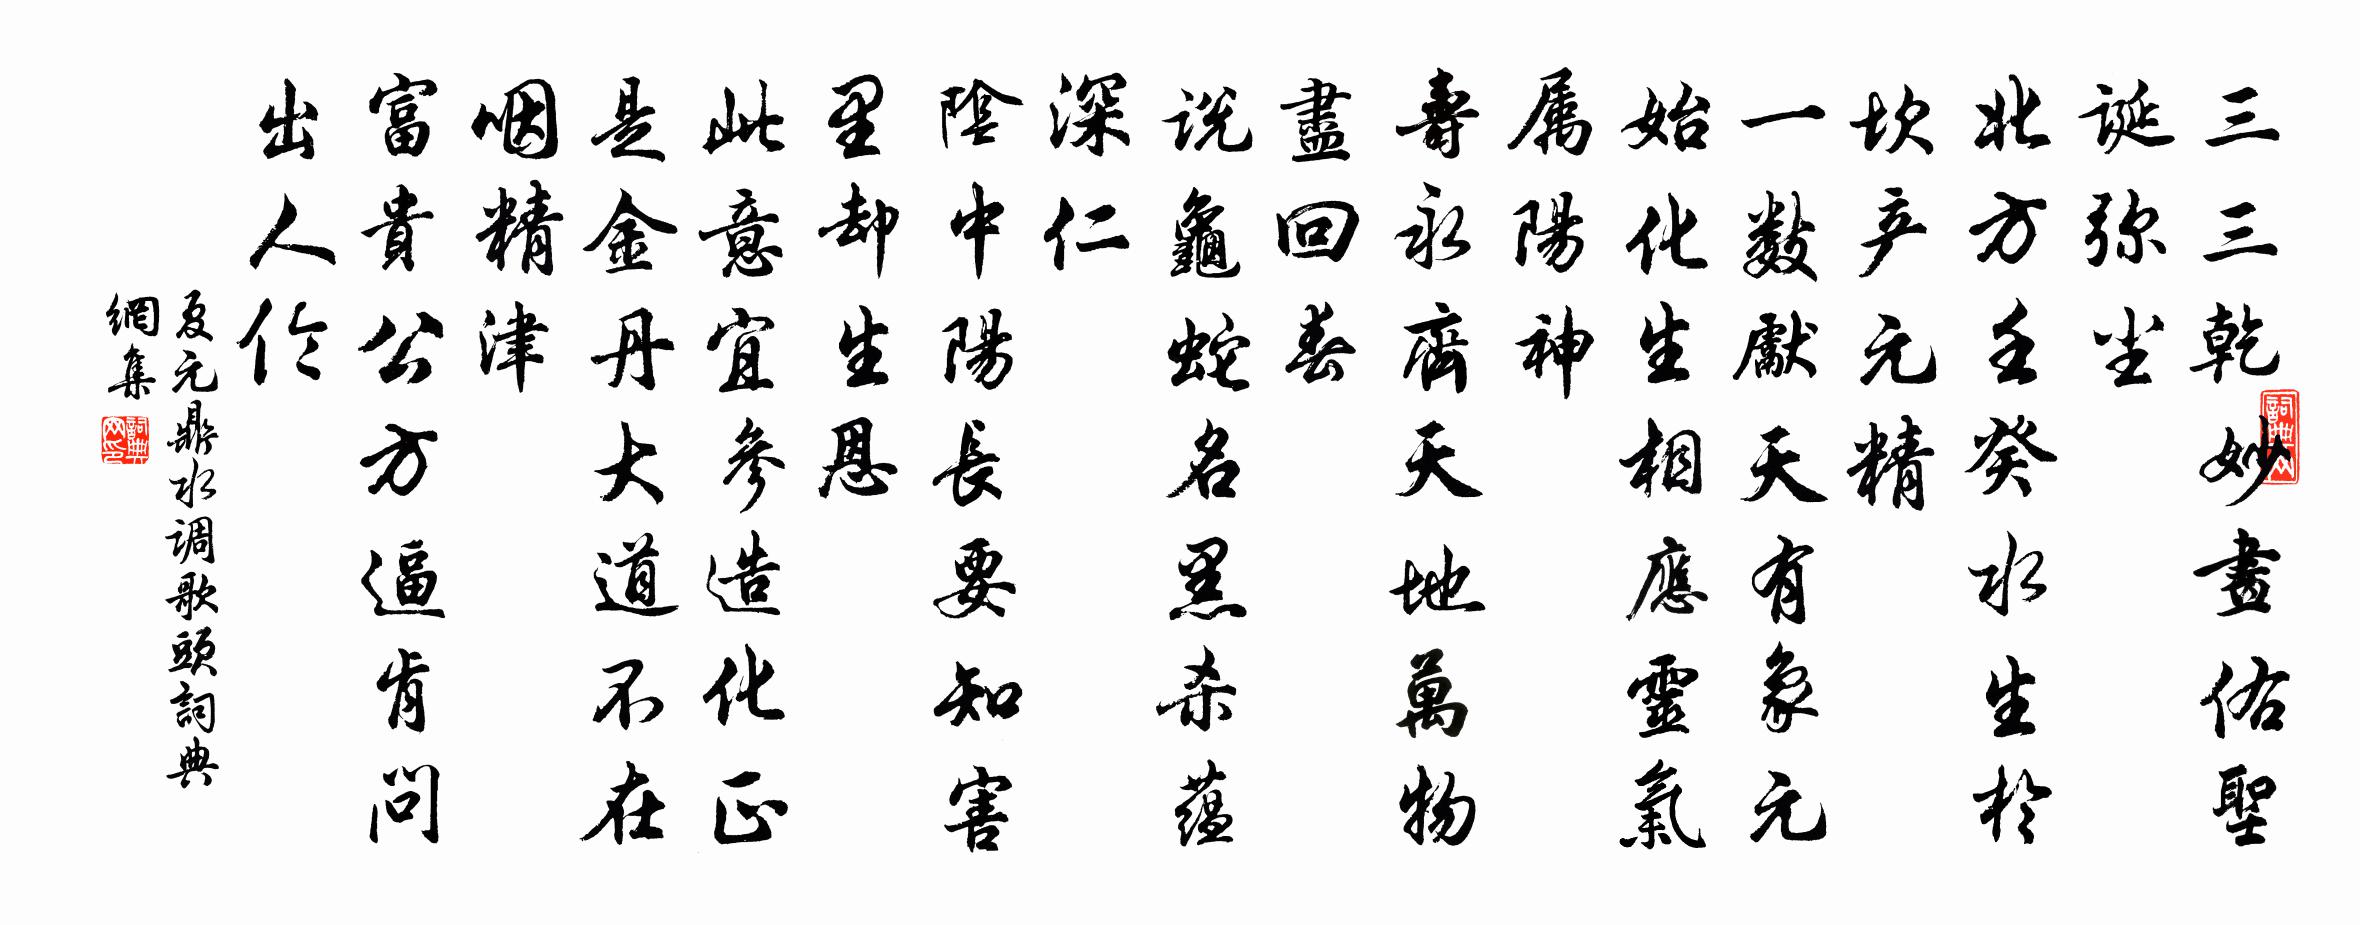 三三乾妙畫佑聖
誕弥尘
北方壬癸水生於
坎产元精
一数獻天有象元
始化生相應靈氣
属陽神
壽永齊天地萬物
盡回春
说龜蛇名黑杀蕴
深仁
陰中陽長要知害
里却生恩
此意宜参造化正
是金丹大道不在
咽精津
富貴公方逼肯問
出人伦
夏元鼎水调歌頭詞典
網集
詞典网
詞典网印